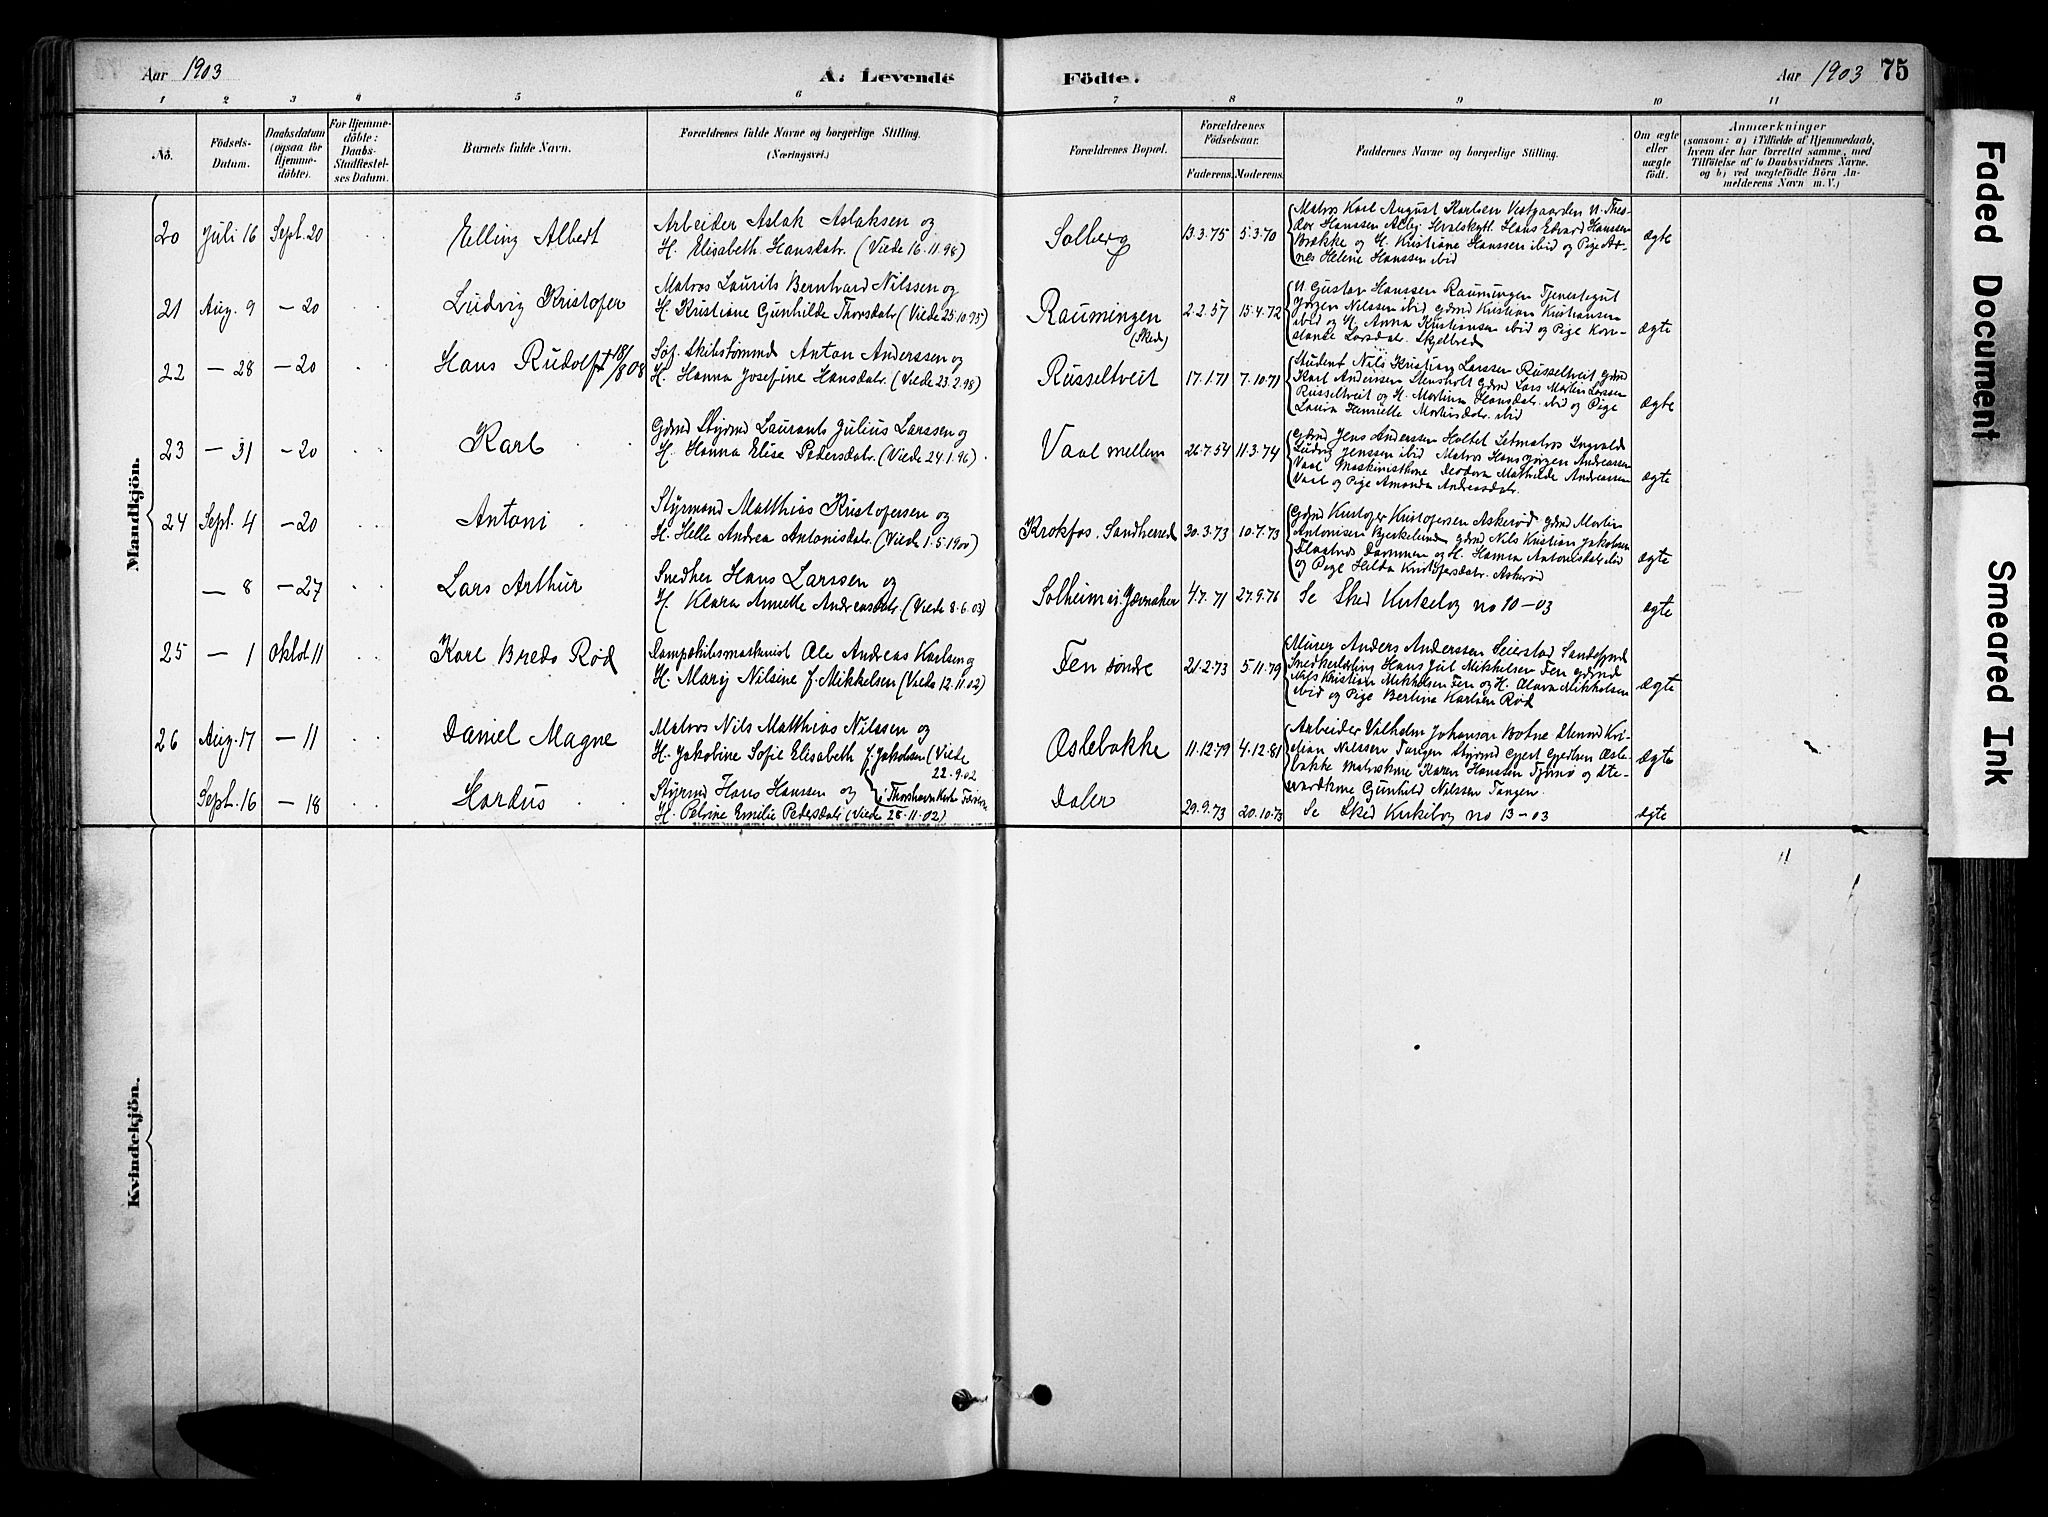 Aar 1903
A. Levende Födte.
Aar 1903 75
1 2 3 4 5 6 7 8 9 10 11
No.
Födsels-Datum.
Daabsdatum (ogsaa for Hjemme-döbte).
For Hjemme-döbte: Daabs-Stadfæstel-ses Datum.
Barnets fulde Navn.
Forældrenes fulde Navne og borgerlige Stilling. (Næringsvei.)
Forældrenes Bopæl.
Forældrenes Födselsaar.
Faderens. Moderens.
Faddernes Navne og borgerlige Stilling.
Om ægte eller uægte födt.
Anmærkninger
(saasom: a) i Tilfælde af Hjemmedaab,
hvem der har forrettet samme, med
Tilföielse af to Daabsvidners Navne.
og b) ved uægtefödte Börn An-
melderens Navn m. V.)
Mandkjön.
20 Juli 16 Sept. 20 Elling Albert
Arbeider Aslak Aslaksen og
H. Elisabeth Hansdatr. (Viede 16.11.98)
Solberg 13.3.75 5.3.70
Matros Karl August Karlsen Vestgaarden U. The-
dor Hanssen Alby Hvalskytt. Hans Edvard Hanssen
Brække og H. Kristiane Hanssen ibid og Pige Ag-
nes Helene Hanssen ibid
ægte
21 Aug. 9 — 20 Ludvig Kristofer
Matros Laurits Berntvard Nilssen og
H. Kristiane Gunhilde Thorsdatr. (Viede 25.10.95)
Raumingen (Skee) 2.2.57 15.4.72
U. Gustav Hanssen Raumingen Tjenestegut
Jørgen Nilssen ibid Gdmd Kristian Kristiansen
ibid og H. Anna Kristiansen ibid og Pige Kon-
stanse Larsdatr. Skjelbred
ægte
22 — 28 — 20 Hans Rudolf † 18/8 08
Søf. Skibstømmd Anton Anderssen og
H. Hanna Josefine Hansdatr. (Viede 23.2.98)
Russeltveit 17.1.71 7.10.71
Student Nils Kristian Larssen Russeltveit Gdmd
Karl Andersen Stensholt Gdmd Lars Martin Larssen
Russeltveit og H. Martina Hansdatr. ibid og Pige
Laura Henriette Martinsdatr. ibid
ægte
23 — 31 — 20 Karl
Gdmd Styrmd Laurants Julius Larssen og
H. Hanna Elise Pedersdatr. (Viede 24.1.96).
Vaal mellem 26.7.54 11.3.74
Gdmd Jens Anderssen Holtet Letmatros Ingvald
Ludvig Jenssen ibid Matros Hans Jørgen Andreassen
Vaal Maskinistkone Teodora Mathilde Andreassen
Vaal og Pige Amanda Andreasdatr.
ægte
24 Sept. 4 — 20 Antoni
Styrmand Matthias Kristofersen og
H. Helle Andrea Antonisdatr. (Viede 1.5.1900)
Krokfos. Sandherred 30.3.73 10.7.73
Gdmd Kristofer Kristofersen Askerød Gdmd Martin
Antonisen Bjerkelund Gdmd Nils Kristian Jakobsen
Drammen og H. Hanna Antonisdatr. ibid
og Pige Hilda Kristofersdatr. Askerød
ægte
— 8 — 27 Lars Arthur
Snedker Hans Larssen og
H. Klara Annette Andreasdatr. (Viede 8.6.03)
Solheim i Jævnaker 4.7.71 27.9.76
Se Sked Kirkebog no 10-03
ægte
25 — 1 Oktob. 11 Karl Bredo Rød
Dampskibsmaskinist Ole Andreas Karlsen og
H. Mary Nilsine f. Mikkelsen (Viede 12.11.02)
Fen søndre 21.2.73 5.11.79
Murer Anders Anderssen Seierstad Sandefjord
Snedkerlærling Hans Jul Mikkelsen Fen Gdmd
Nils Kristian Mikkelsen Fen og H. Olava Mikkelsen
ibid og Pige Bertina Karlsen Rød
ægte
26 Aug. 17 — 11 Daniel Magne
Matros Nils Matthias Nilssen og
H. Jakobine Sofie Elisabeth f. Jakobsen (Viede
22.9.02
Oslebakke 11.12.79 4.12.81
Arbeider Vilhelm Johansen Botne Stenmd Kri-
stian Nilssen Tangen Styrmd Gjert Gjertsen Osle-
bakke Matroskone Karen Hanssen Tjømø og Ste-
wardkone Gunhild Nilssen Tangen.
ægte
Sept. 16 — 18 Hardus
Styrmd Hans Hanssen og { i Thorshavn Kirke Færøerne
H. Petrine Emilie Pedersdatr (Viede 28.11.02)
Daler 29.9.73 20.10.73
Se Sked Kirkebog no 13-03
ægte
Kvindekjön.
Faded Document
Smeared Ink